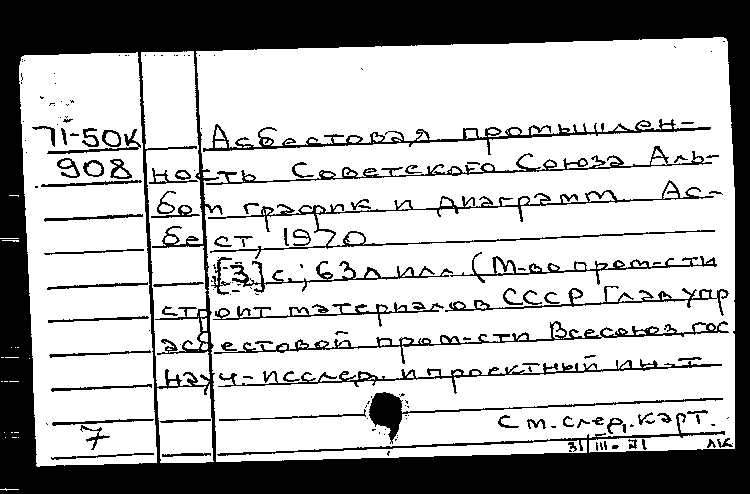 71-50к Асбестовая промышлен-
908 ность Советского Союза. Аль-
бом график и диаграмм. Ас-
бест, 1970.
[3] с.; 63 л илл. (М-во пром-сти
строит материалов СССР Глав упр
асбестовой пром-сти Всесоюз. гос.
науч-исслед. и проектный ин-т
См. след. карт.
7
31/III-71 ЛК